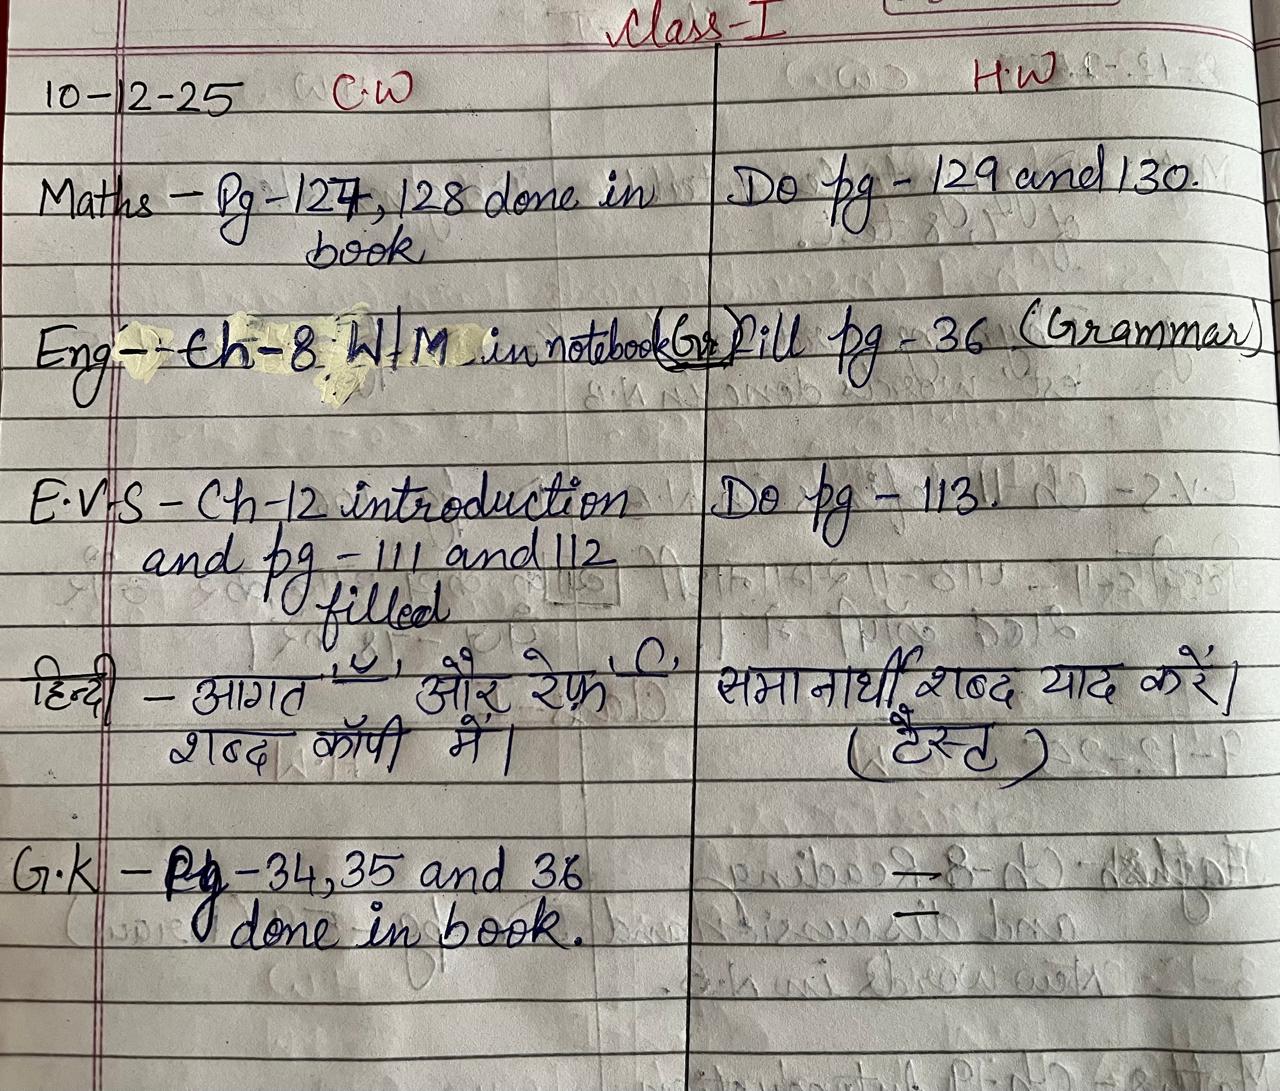 Class-I
10-12-25 C.W H.W
Maths - Pg-127, 128 done in Do pg - 129 and 130.
book
Eng - Ch-8 W/M in notebook (Gr) Fill pg - 36 (Grammar)
E.V.S - Ch-12 introduction Do pg - 113.
and pg - 111 and 112
filled
हिन्दी - आगत 'ॅ' और रेफ़ 'र्' समानार्थी शब्द याद करें।
शब्द कॉपी में। (टैस्ट)
G.K - Pg - 34, 35 and 36
done in book.